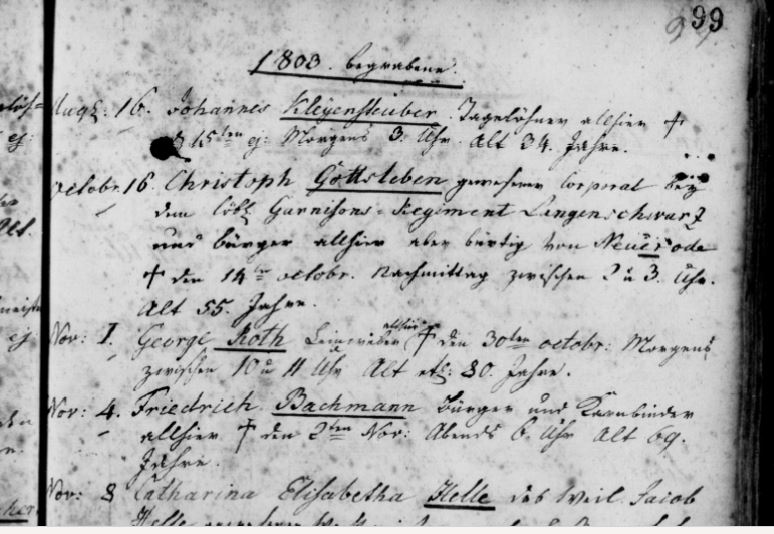 99
1803. begrabene.
Augst: 16. Johannes Kleyensteuber. Tagelöhner allhier †
d 15ten ej: Morgens 3. Uhr. Alt 34. Jahre.
Octobr. 16. Christoph Gottsleben gewesener Corporal bey
dem löbl. Garnisons-Regiment Langenschwarz
und bürger allhier aber bürtig von Neuerode
† den 14ten octobr. Nachmittag zwischen 2 u 3. Uhr.
Alt 55. Jahre.
Nov: 1. George Roth Leinweber allhier † den 30ten octobr: Morgens
zwischen 10 u 11 Uhr Alt 80. Jahre.
Nov: 4. Friedrich Bachmann Bürger und
allhier † den 2ten Nov: Abends 6. Uhr Alt 69.
Jahre.
Nov: 8 Catharina Elisabetha Helle des weil. Jacob
Helle